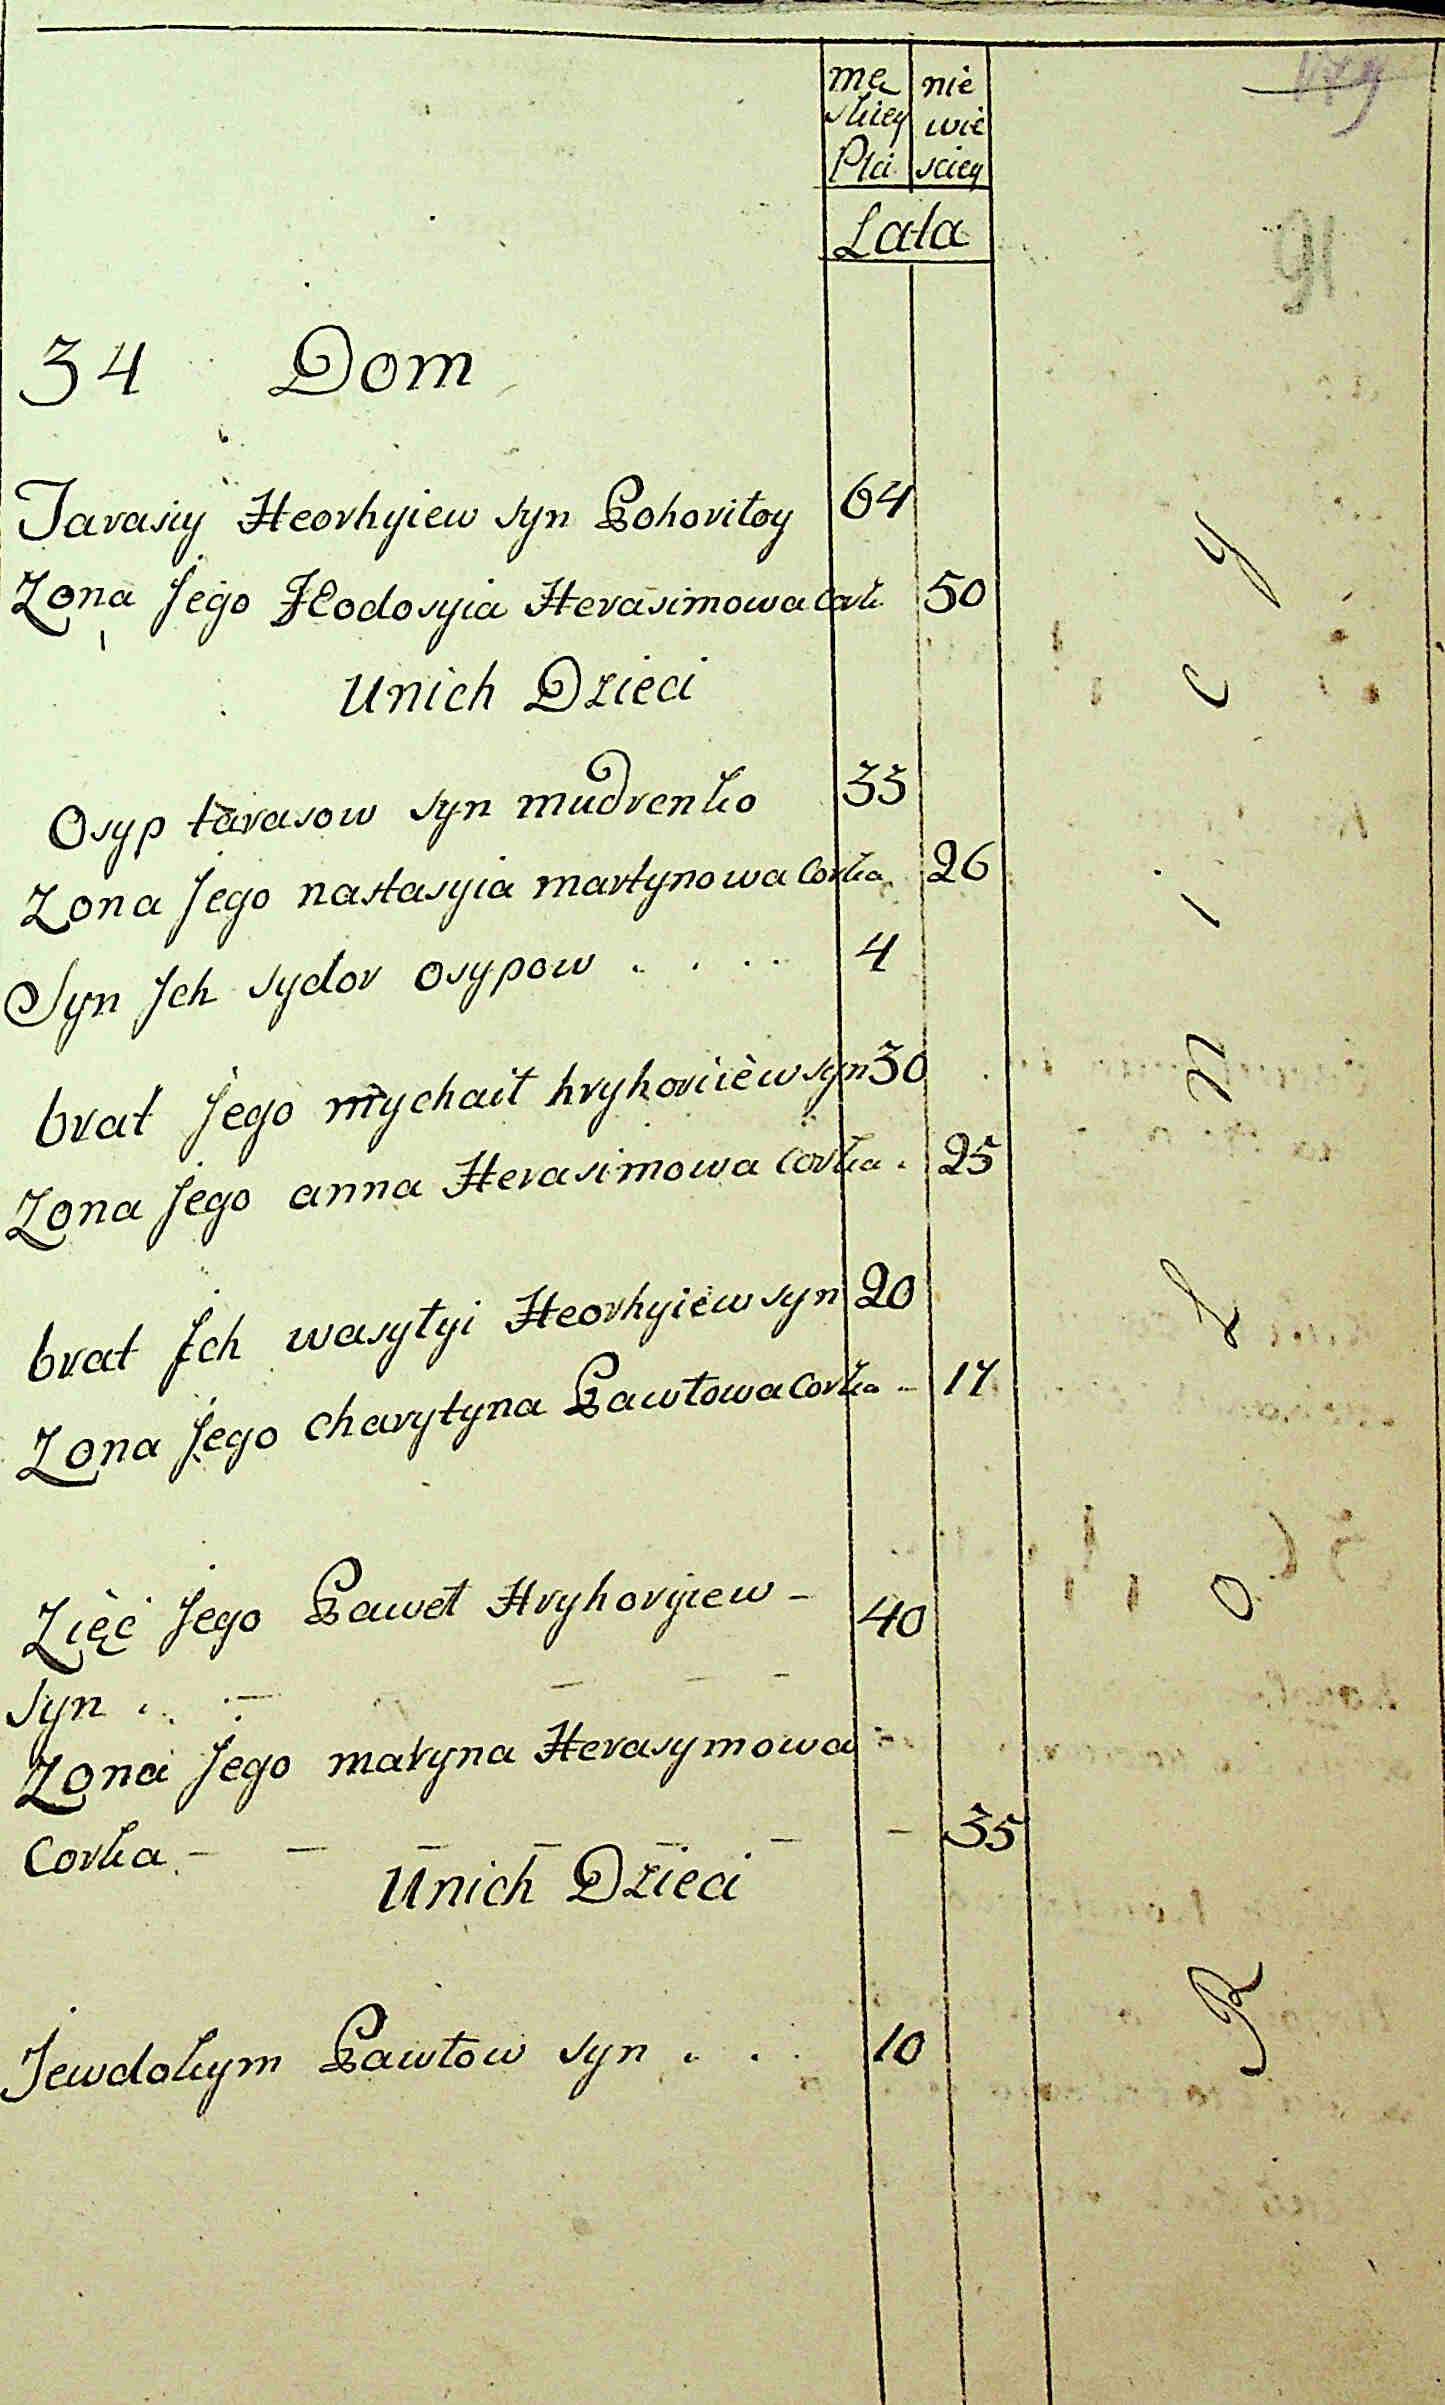 mę nie
skiey wie
Płci sciey
Lata
179
91
34 Dom
Tarasiy Heorhyiew syn Pohoriłoy 64
Zona Jego Feodosyia Herasimowa Cork. 50
Unich Dzieci
Osyp tarasow syn mudrenko 33
Zona Jego nastasyia martynowa Corka 26
Syn Jch sydor osypow . . . . 4
brat Jego mychaił hryhoriiew syn 30
Zona Jego anna Herasimowa Corka . 25
brat Jch wasyłyi Heorhyiew syn 20
Zona Jego charytyna Pawłowa Corka - 17
Zięć Jego Paweł Hryhoryiew - 40
syn . . - - - -
Zona Jego maryna Herasymowa
Corka - - - - - - - 35
Unich Dzieci
Jewdokym Pawłow syn . . . 10
Rolnicy